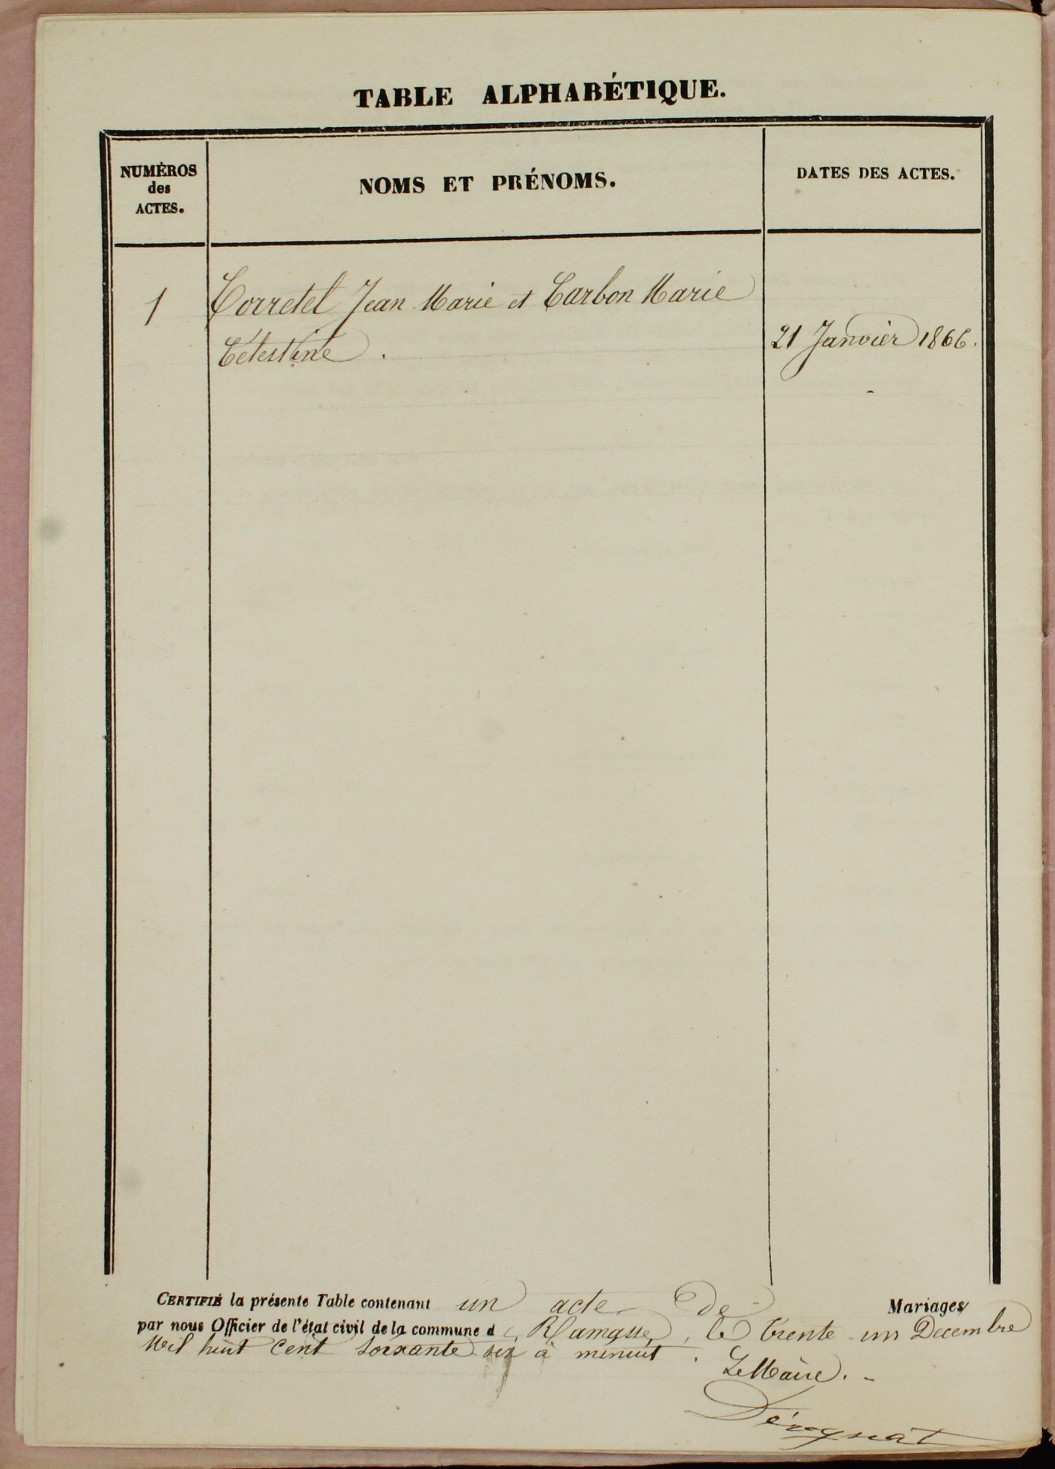 TABLE ALPHABÉTIQUE.
NUMÉROS
des
ACTES.
NOMS ET PRÉNOMS.
DATES DES ACTES.
1
Corretel Jean Marie et Carbon Marie
Célestine .
21 Janvier 1866.
CERTIFIÉ la présente Table contenant un acte de Mariages
par nous Officier de l'état civil de la commune de Ramasse, le trente un Decembre
Mil huit Cent Soixante six à minuit.
Le Maire.